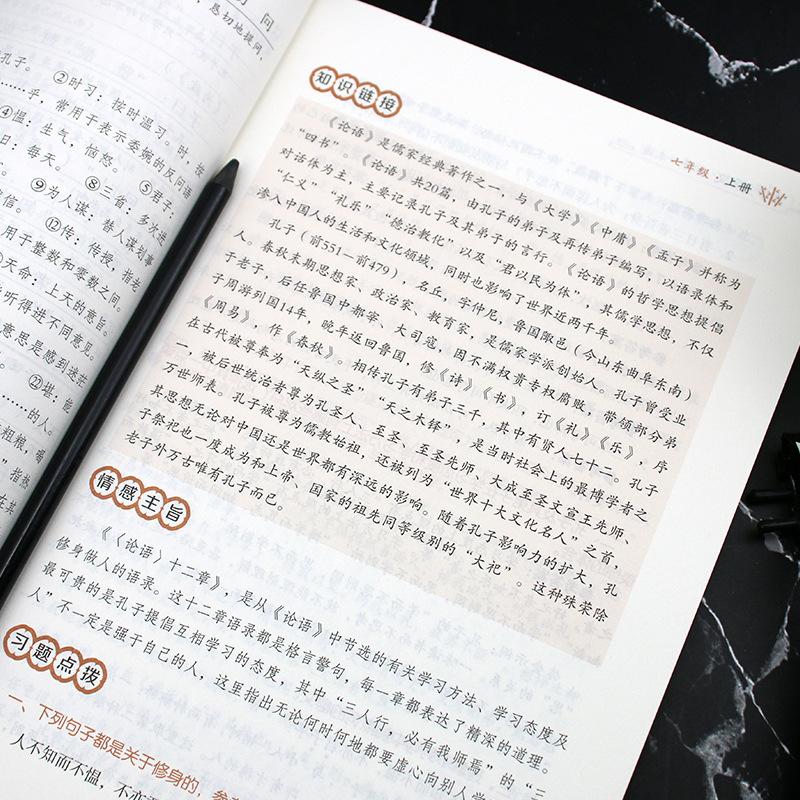 的 问
，恳切地提问，
孔子。 ②时习：按时温习。时，按
……乎，常用于表示委婉的反问语
④愠：生气，恼怒。 ⑤君子：
日：每天。 ⑧三省：多次进
⑨为人谋：替人谋划事
⑫传：传授，指老
用于整数和零数之间。
天命：上天的意旨。
听得进不同意见。
意思是感到迷茫
㉒堪，能
……的人。
粗粮，喝
”指热
在其
七年级·上册
知识链接
《论语》是儒家经典著作之一，与《大学》《中庸》《孟子》并称为
“四书”。《论语》共20篇，由孔子的弟子及再传弟子编写，以语录体和
对话体为主，主要记录孔子及其弟子的言行。《论语》的哲学思想提倡
“仁义”“礼乐”“德治教化”以及“君以民为体”，其儒学思想，不仅
渗入中国人的生活和文化领域，同时也影响了世界近两千年。
孔子（前551—前479），名丘，字仲尼，鲁国陬邑（今山东曲阜东南）
人。春秋末期思想家、政治家、教育家，是儒家学派创始人。孔子曾受业
于老子，后任鲁国中都宰、大司寇，因不满权贵专权腐败，带领部分弟
子周游列国14年，晚年返回鲁国，修《诗》《书》，订《礼》《乐》，序
《周易》，作《春秋》。相传孔子有弟子三千，其中有贤人七十二。孔子
在古代被尊奉为“天纵之圣”“天之木铎”，是当时社会上的最博学者之
一，被后世统治者尊为孔圣人、至圣、至圣先师、大成至圣文宣王先师、
万世师表。其思想无论对中国还是世界都有深远的影响。随着孔子影响力的扩大，孔
子祭祀也一度成为和上帝、国家的祖先同等级别的“大祀”。这种殊荣除
老子外万古唯有孔子而已。
孔子被尊为儒教始祖，还被列为“世界十大文化名人”之首，
情感主旨
《〈论语〉十二章》，是从《论语》中节选的有关学习方法、学习态度及
修身做人的语录。这十二章语录都是格言警句，每一章都表达了精深的道理。
最可贵的是孔子提倡互相学习的态度，其中“三人行，必有我师焉”的“三
人”不一定是强于自己的人，这里指出无论何时何地都要虚心向别人学
习题点拨
一、下列句子都是关于修身的，
人不知而不愠，不亦